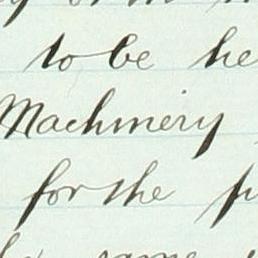 to be he
Machinery
for the p
same